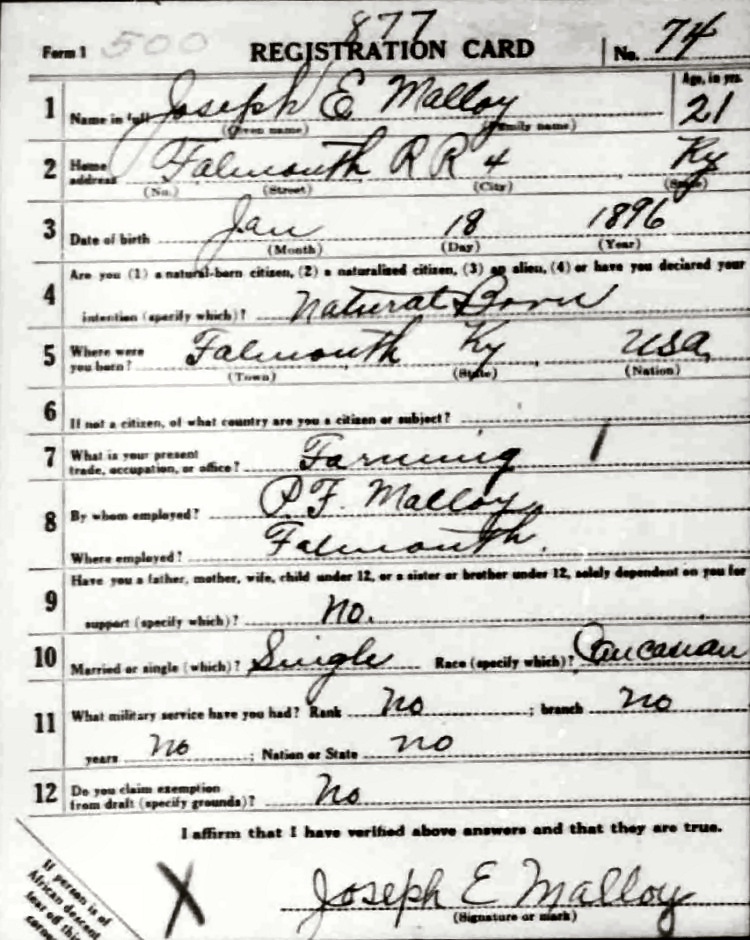 877
Form 1 500 REGISTRATION CARD No. 74
1 Name in full Joseph E Malloy Age, in yrs. 21
(Given name) (Family name)
2 Home address Falmouth RR 4 Ky
(No.) (Street) (City) (State)
3 Date of birth Jan 18 1896
(Month) (Day) (Year)
4 Are you (1) a natural-born citizen, (2) a naturalized citizen, (3) an alien, (4) or have you declared your
intention (specify which)? Natural Born
5 Where were you born? Falmouth Ky USA
(Town) (State) (Nation)
6 If not a citizen, of what country are you a citizen or subject?
7 What is your present trade, occupation, or office? Farming
8 By whom employed? P F. Malloy
Where employed? Falmouth.
9 Have you a father, mother, wife, child under 12, or a sister or brother under 12, solely dependent on you for
support (specify which)? No.
10 Married or single (which)? Single Race (specify which)? Caucasian
11 What military service have you had? Rank No ; branch No
years No ; Nation or State No
12 Do you claim exemption from draft (specify grounds)? No
I affirm that I have verified above answers and that they are true.
X Joseph E Malloy
(Signature or mark)
If person is of
African descent
tear off this
corner